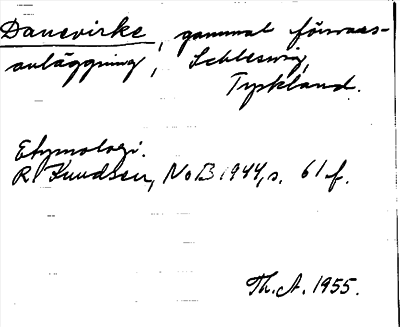 Danevirke, gammal försvars-
anläggning, Schleswig,
Tyskland.
Etymologi.
R. Knudsen, NoB 1944, s. 61 f.
Th. A. 1955.